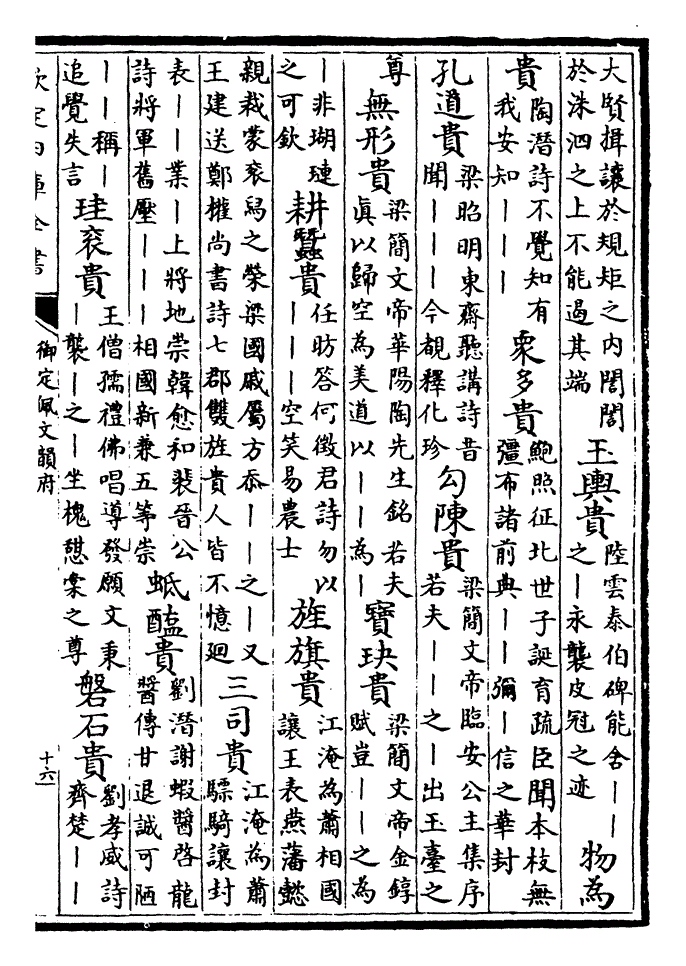 大賢揖讓於規矩之内誾誾
於洙泗之上不能遏其端
玉輿貴
陸雲泰伯碑能舍丨丨
之丨永襲皮冠之迹
物為
貴
陶潛詩不覺知有
我安知丨丨丨
衆多貴
鮑照征北世子誕育疏臣聞本枝無
彊布諸前典丨丨彌丨信之華封
孔道貴
梁昭明東齋聽講詩昔
聞丨丨丨今覩釋化珍
勾陳貴
梁簡文帝臨安公主集序
若夫丨丨之丨出玉臺之
尊
無形貴
梁簡文帝華陽陶先生銘若夫
眞以歸空為美道以丨丨為丨
寶玦貴
梁簡文帝金錞
賦豈丨丨之為
丨非瑚璉
之可欽
耕蠶貴
任昉答何徵君詩勿以
丨丨丨空笑易農士
旌旗貴
江淹為蕭相國
讓王表燕藩懿
親裁蒙衮舄之榮梁國戚屬方忝丨丨之丨又
王建送鄭權尚書詩七郡雙旌貴人皆不憶迴
三司貴
江淹為蕭
驃騎讓封
表丨丨業丨上將地崇韓愈和裴晉公
詩將軍舊壓丨丨丨相國新兼五等崇
蚳醢貴
劉潛謝蝦醬啓龍
醬傳甘退誠可陋
丨丨稱丨
追覺失言
珪衮貴
王僧孺禮佛唱導發願文秉
丨襲丨之丨坐槐憇棠之尊
磐石貴
劉孝威詩
齊楚丨丨
欽定四庫全書
御定佩文韻府
十六